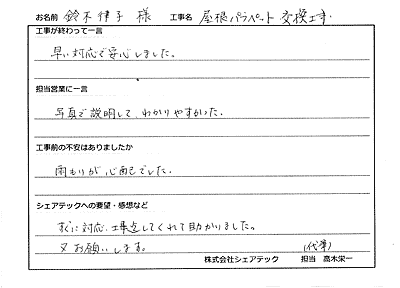 お名前 鈴木律子 様 工事名 屋根パラペット交換工事
工事が終わって一言
早い対応で安心しました。
担当営業に一言
写真で説明して、わかりやすかった。
工事前の不安はありましたか
雨もりが心配でした。
シェアテックへの要望・感想など
すぐに対応、工事をしてくれて助かりました。
又お願いします。
(代筆)
株式会社シェアテック 担当 高木栄一